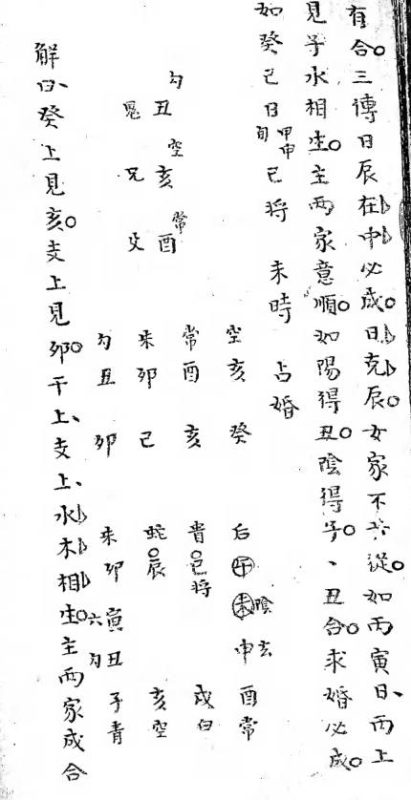 有合三傳日辰在中必成日克辰女家不六從如丙寅日丙上
見子水相生主兩家意順如陽得丑陰得子、丑合求婚必成
如癸巳日甲申旬巳將 未時 占婚
勾丑 鬼
空亥 兄
常酉 父
空亥 癸
常酉 亥
朱卯 巳
勾丑 卯
后午 陰未 玄申 酉常
貴巳將 戌白
蛇辰 亥空
朱卯 六寅 勾丑 子青
解曰癸上見亥支上見卯干上、支上、水木相生主兩家成合